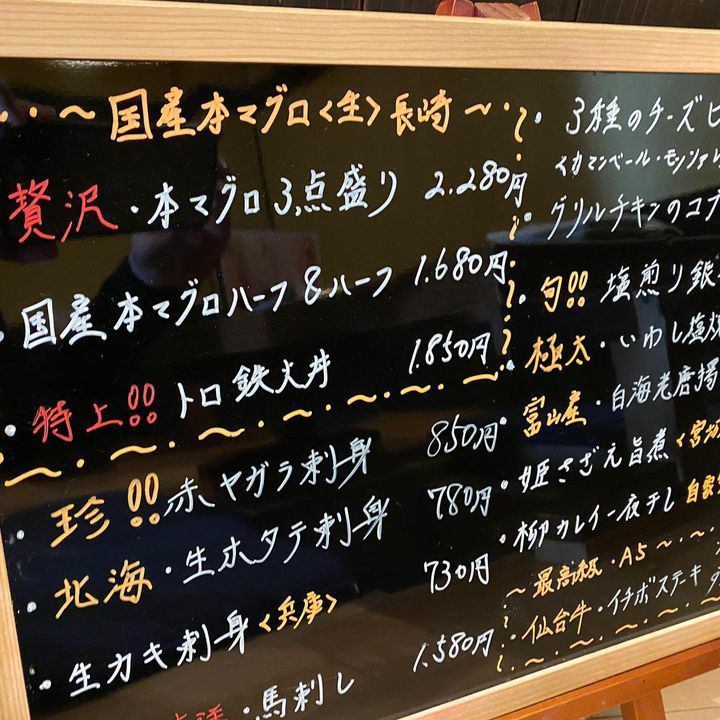 〜国産本マグロ〈生〉長崎〜
贅沢・本マグロ3点盛り 2.280円
国産本マグロハーフ&ハーフ 1.680円
・特上!! トロ鉄火丼 1.850円
・珍!!赤ヤガラ刺身 850円
・北海・生ホタテ刺身 780円
・生カキ刺身〈兵庫〉 730円
・馬刺し 1.580円
・3種のチーズピ
イカマンベール・モッツァレ
グリルチキンのコブ
・旬!! 塩煎り銀
・極太・いわし塩焼
富山産・白海老唐揚
・姫さざえ旨煮〈宮
・柳カレイ一夜干し 自家
〜最高級・A5〜
・仙台牛・イチボステーキ